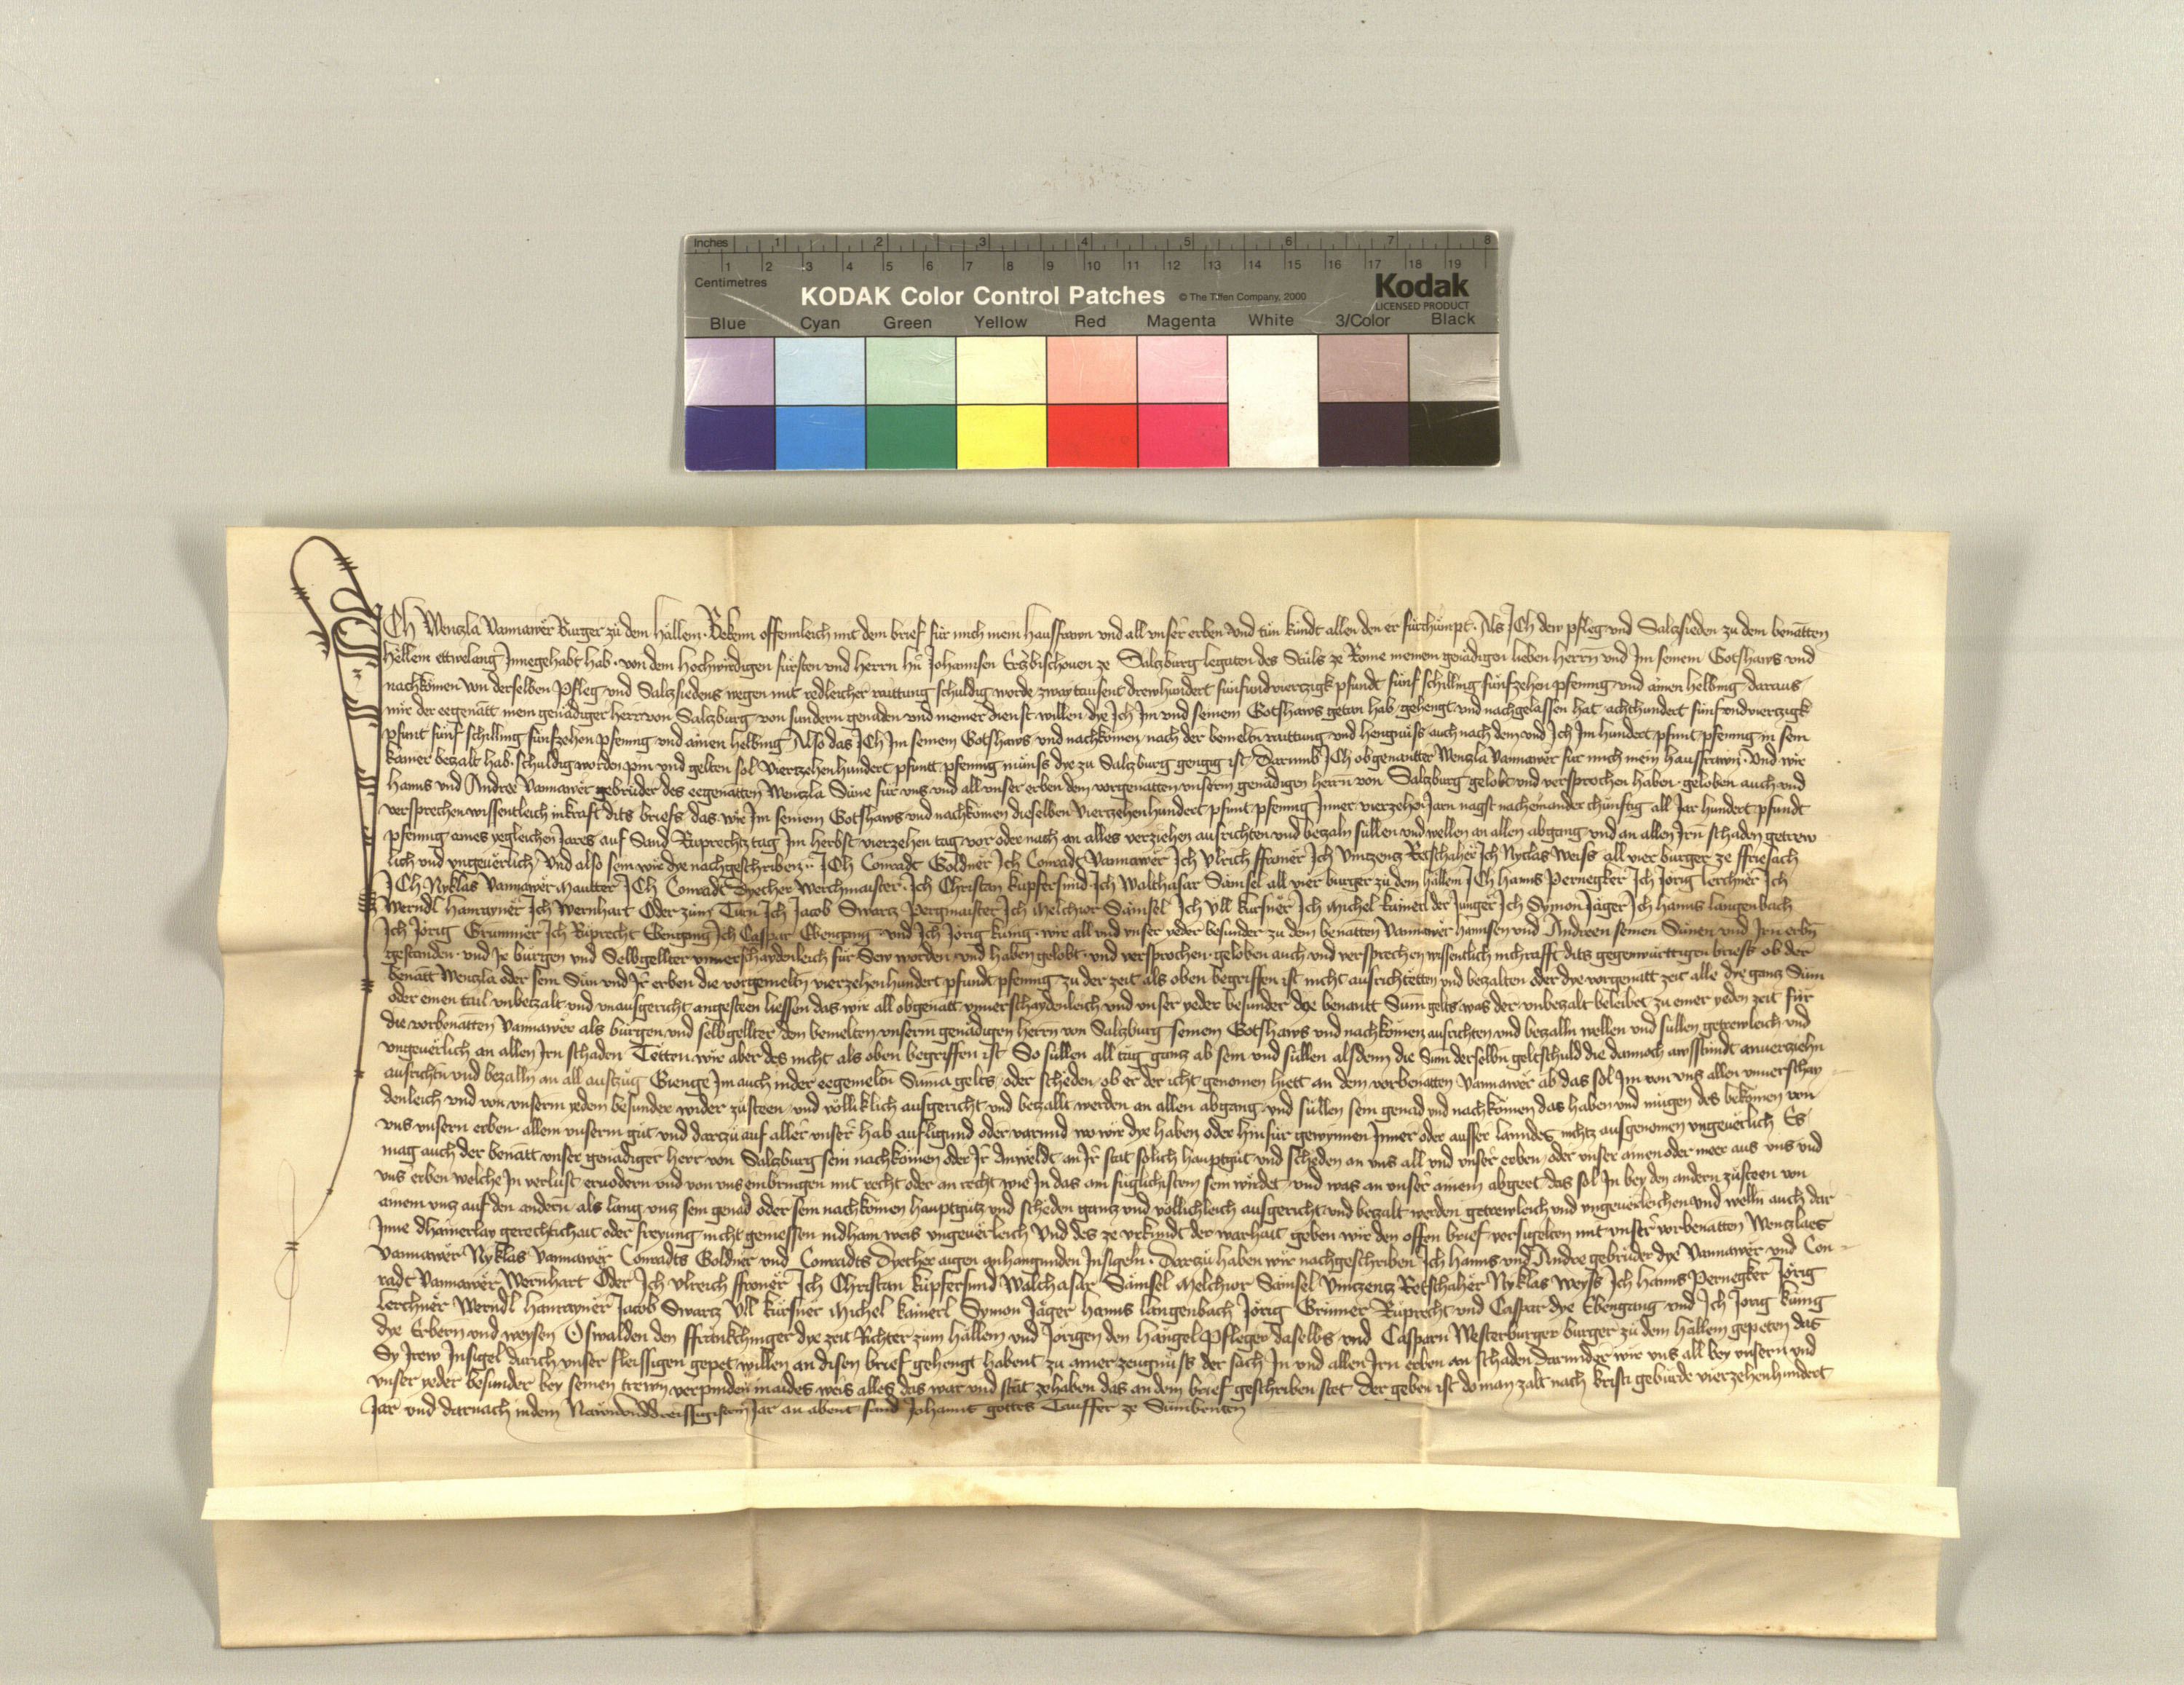 Inches 1 2 3 4 5 6 7 8
1 2 3 4 5 6 7 8 9 10 11 12 13 14 15 16 17 18 19
Centimetres
KODAK Color Control Patches © The Tiffen Company, 2000 Kodak
LICENSED PRODUCT
Blue Cyan Green Yellow Red Magenta White 3/Color Black
ICh Wenzla Vannawër Burger zu dem Hällein Bekenn offennleich mit dem brief für mich mein hausfrawn vnd all vnser erben vnd tun kundt allen den er fürchümpt Als ICh den pfleg vnd Salzsieden zu dem benantten
Hëllein ettwelang Innegehabt hab von dem Hochwirdigen fürsten vnd herrn hn Johannsen Ertzbischouen ze Salzburg legaten des Stuls ze Rome meinem genädigen lieben herrn vnd Im seinem Gotshaws vnd
nachkömen von derselben Pfleg vnd Salzsiedens wegen mit redleicher raittung schuldig worden zway tausent drewhundert fünfundvierzigk pfundt fünf schilling fünfzehen pfening vnd ainen helbling daraus
mir der eegenant mein genädiger herr von Salzburg von sundern genaden vnd meiner dienst willen dye Ich Im vnd seinem Gotshaws getan hab gehengt vnd nachgelassen hat achthundert fünfvndvierzigk
pfunt fünf schilling fünfzehen pfening vnd ainen helbling Also das ICh Im seinem Gotshaws vnd nachkömen nach der bemelten raittung vnd hengnüss auch nach dem vnd Ich Im hundert pfunt pfening in sein
kamer bezalt hab schuldig worden pin vnd gelten sol Vierzehenhundert pfunt pfening münss dye zu Salzburg gengig ist Darumb ICh obgenantter Wenzla Vannawër für mich mein hausfrawn Vnd wir
Hanns vnd Andree Vannawër gebrüder des eegenantten Wenzla Süne für vns vnd all vnser erben dem vorgenantten vnserm genädigen herrn von Salzburg gelobt vnd versprochen haben geloben auch vnd
versprechen wissentleich in kraft dits briefs das wir Im seinem Gotshaws vnd nachkömen dieselben Vierzehenhundert pfunt pfening Inner vierzehen Jarn nagst nacheinander chünftig all Jar hundert pfundt
pfening aines yegleichen Jares auf Sand Ruprechtz tag Im herbst vierzehen tag vor oder nach an alles verziehen ausrichten vnd bezaln süllen vnd wellen an allen abgang vnd an allen Irn schaden getrew
lich vnd vngeuerlich Vnd also sein wir dye nachgeschriben ICh Conradt Goldner Ich Conradt Vannawër Ich Vlrich ffroner Ich Vintzenz Retschaher Ich Nyclas Weiss all vier burger ze ffriesach
ICh Nyklas Vannawër Mautter ICh Conradt Dyether Werchmaister Ich Christan Kupfersmid Ich Walthasar Sämsel all vier burger zu dem Hällein ICh Hanns Pernegker Ich Jörig Lerchner Ich
Werndl Hanrayner Ich Wernhart Oder zum Turn Ich Jacob Swartz Pergmaister Ich Melchior Sämsel Ich Vll Kursner Ich Michel Kainerl der Junger Ich Symon Jäger Ich Hanns Langenbach
Ich Jörig Grimmer Ich Ruprecht Ebengang Ich Caspar Ebengang vnd Ich Jörig Kunig wir all vnd vnser yeder besunder zu dem benantten Vannawër Hannsen vnd Andreen seinen Sünen vnd Irn erbn
gestanden vnd Ir bürgen vnd Selbgellter vnuerschaydenleich für Sew worden vnd haben gelobt vnd versprochen geloben auch vnd versprechen wissentlich in chrafft dits gegenwurttigen briefs ob der
benant Wenzla oder sein Sün vnd Ir erben die vorgemelten vierzehenhundert pfundt pfening zu der zeit als oben begriffen ist nicht ausrichtetten vnd bezalten oder dye vorgenant zeit alle dye ganz Sum
oder einen tail vnbetzalt vnd vnausgericht angesteen liessen das wir all obgenant vnuerschaydenleich vnd vnser yeder besunder dye benantt Sum gelts was der vnbezalt beleibet zu einer yeden zeit für
die vorbenantten Vannawër als bürgen vnd selbgellter den bemelten vnserm genädigen herrn von Salzburg seinem Gotshaws vnd nachkömen ausrichten vnd bezalln wellen vnd süllen getrewleich vnd
vngeuerlich an allen Irn schaden Tetten wir aber des nicht als oben begriffen ist So süllen all täg ganz ab sein vnd süllen alsdenn die Sum derselbn geltschuld die dannoch awsstündt anuerziehn
ausrichtn vnd bezalln an all austzug Gienge Im auch in der eegemeltn Suma gelts oder scheden ob er der icht genomen hiett an dem vorbenantten Vannawër ab das sol Im von vns allen vnuerschay
denleich vnd von vnserm yedem besunder wider zusteen vnd völliklich ausgericht vnd bezallt werden an allen abgang vnd süllen sein genad vnd nachkömen das haben vnd mügen des bekomen von
vns vnsern erben allem vnserm gut vnd darzu auf aller vnser hab aufligund oder varund wo wir dye haben oder hinfür gewynnen Inner oder ausser lanndes nichtz ausgenomen vngeuerlich Es
mag auch der benant vnser genädiger herr von Salzburg sein nachkömen oder Ir Anwëldt an Ir stat solich hauptgut vnd scheden an vns all vnd vnser erben oder vnser ainen oder meer aus vns vnd
vns erben welche In verlust eruodern vnd von vns einbringen mit recht oder an recht wie In das am füglichisten sein würdet vnd was an vnser ainem abgeet das sol In bey den andern zusteen von
ainem vnz auf den andern als lang vnz sein genad oder sein nachkömen hauptgütz vnd scheden ganz vnd völlichleich ausgericht vnd bezalt werden getrewleich vnd vngeuerleichen vnd welln auch dar
Inne dhainerlay gerechtichait oder freyung nicht geniessen in dhain weis vngeuerleich Vnd des ze vrkundt der warhait geben wir den offen brief versigelten mit vnser vorbenantten Wenzlaes
Vannawër Nyklas Vannawër Conradts Goldner vnd Conradts Dyether aigen anhangunden Insigeln Darzu haben wir nachgeschriben Ich Hanns vnd Andre gebrüder dye Vannawër vnd Con
radt Vannawër Wernhart Oder Ich Vlreich ffroner Ich Christan Kupfersmid Walthasar Sämsel Melchior Sämsel Vintzenz Retschaher Nyklas Weyss Ich Hanns Pernegker Jörig
Lerchner Werndl Hanrayner Jacob Swartz Vll Kürsner Michel Kainerl Symon Jäger Hanns Langenbach Jörig Grimmer Ruprecht vnd Caspar dye Ebengang vnd Ich Jörig Künig
dye Erbern vnd weysen Oswalden den ffränkchinger dye zeit Richter zum Hällein vnd Jörigen den Hängel Pfleger daselbs vnd Casparn Westerburger burger zu dem Hällein gepeten das
Sy Irew Insigel durich vnser fleissigen gepet willen an disen brief gehengt habent zu ainer zeugnüss der sach In vnd allen Irn erben an schaden Darunder wir vns all bey vnsern vnd
vnser yeder besunder bey seinen trewn verpinden in aides weis alles das war vnd stät ze haben das an dem brief geschriben stet Der geben ist do man zalt nach kristi geburde vierzehenhundert
Jar vnd darnach in dem Newnvnddreissigisten Jar an abent sand Johanns gottes Tauffer ze Sunibenten